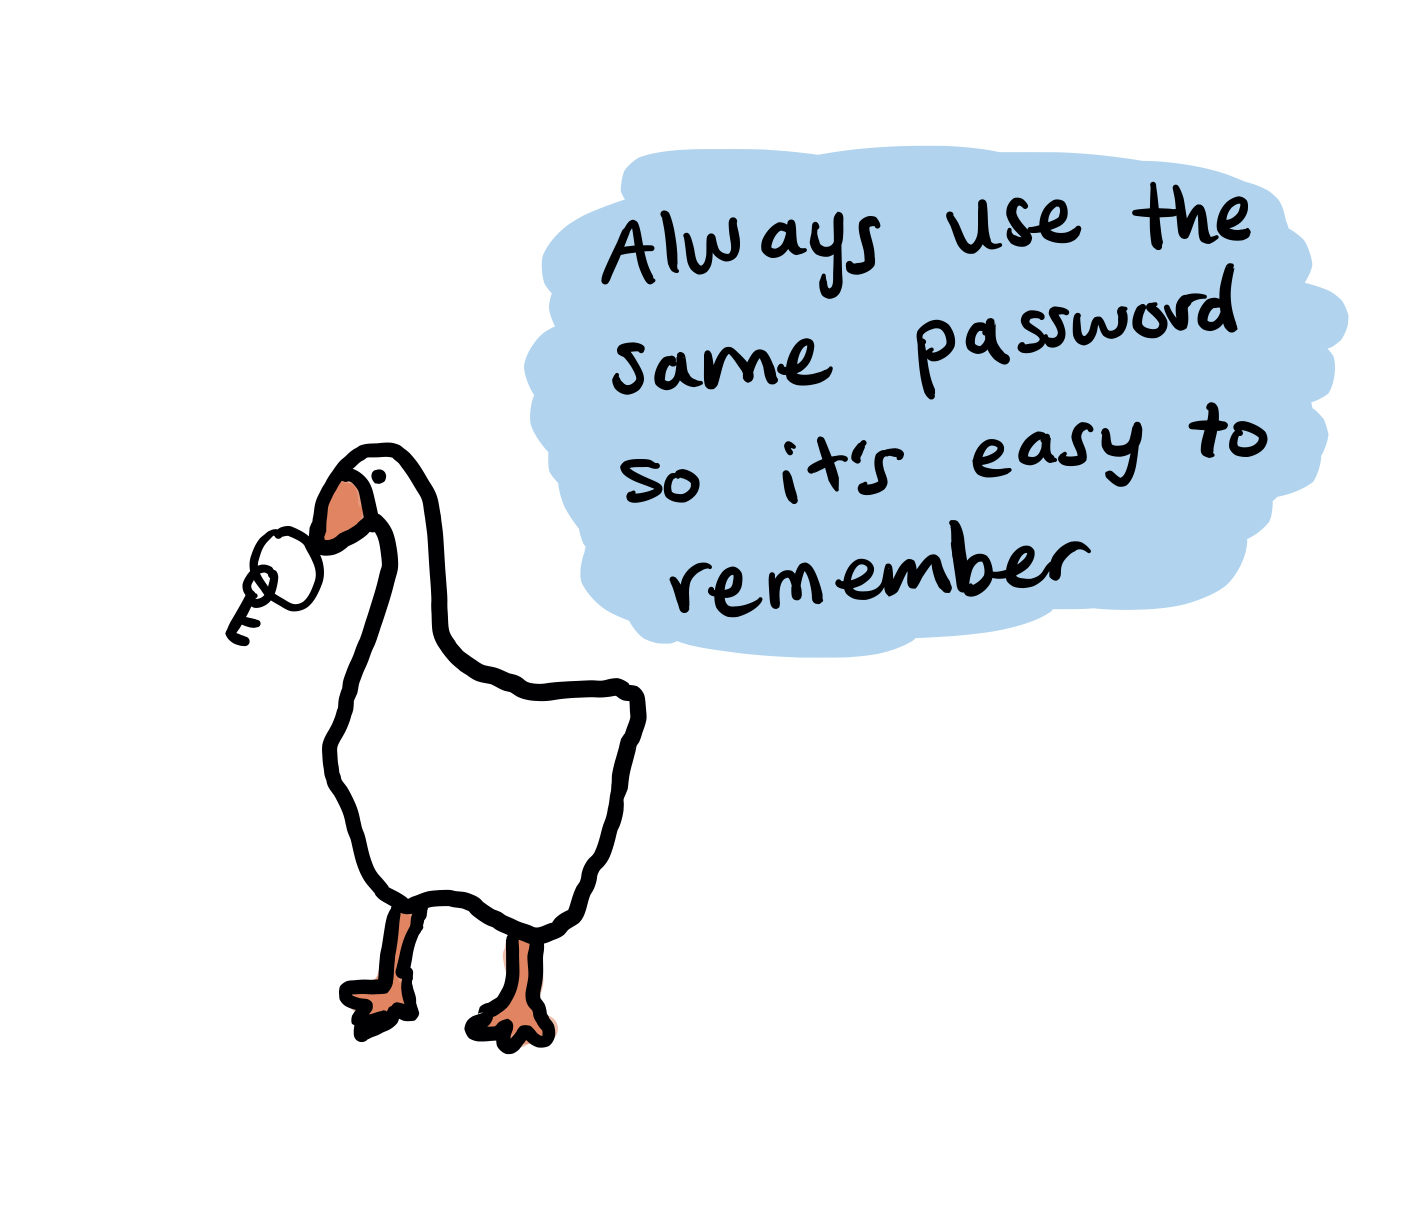 Always use the
same password
so it's easy to
remember